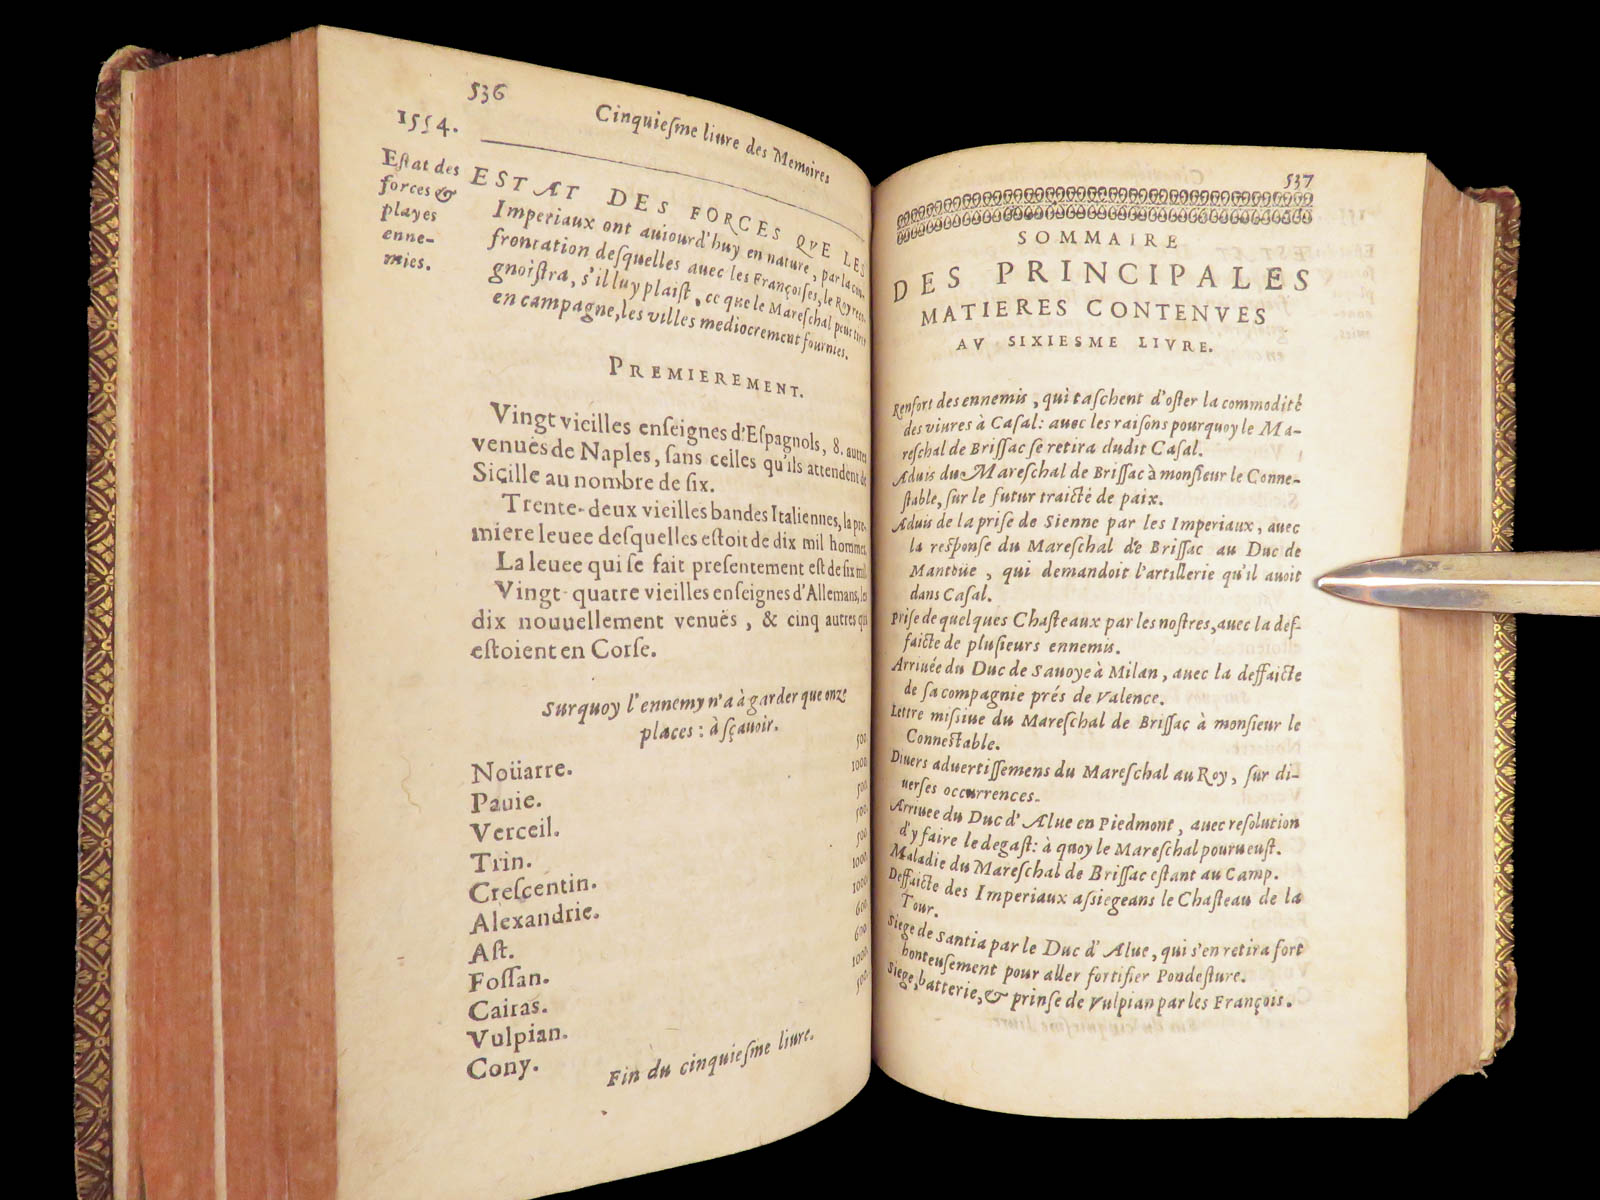 536
Cinquieſme liure des Memoires
1554.
Eſtat des
forces &
playes
enne-
mies.
ESTAT DES FORCES QVE LES
Imperiaux ont auiourd'huy en nature, par la con-
frontation deſquelles auec les Françoiſes, le Roy reco-
gnoiſtra, s'il luy plaiſt, ce que le Mareſchal peut tirer
en campagne, les villes mediocrement fournies.
PREMIEREMENT.
Vingt vieilles enſeignes d'Eſpagnols, 8. autres
venuës de Naples, ſans celles qu'ils attendent de
Sicille au nombre de ſix.
Trente-deux vieilles bandes Italiennes, la pre-
miere leuee deſquelles eſtoit de dix mil hommes.
La leuee qui ſe fait preſentement eſt de ſix mil
Vingt-quatre vieilles enſeignes d'Allemans, les
dix nouuellement venuës, & cinq autres qui
eſtoient en Corſe.
Surquoy l'ennemy n'a à garder que onze
places : à ſçauoir.
Noüarre. 500
Pauie. 1000
Verceil. 500
Trin. 500
Creſcentin. 500
Alexandrie. 1000
Aſt. 1000
Foſſan. 600
Cairas. 600
Vulpian. 1000
Cony. 500.
Fin du cinquieſme liure.
537
SOMMAIRE
DES PRINCIPALES
MATIERES CONTENVES
AV SIXIESME LIVRE.
Renfort des ennemis, qui taſchent d'oſter la commodité
des viures à Caſal : auec les raiſons pourquoy le Ma-
reſchal de Briſſac ſe retira dudit Caſal.
Aduis du Mareſchal de Briſſac à monſieur le Conne-
ſtable, ſur le futur traicté de paix.
Aduis de la priſe de Sienne par les Imperiaux, auec
la reſponſe du Mareſchal de Briſſac au Duc de
Mantoüe, qui demandoit l'artillerie qu'il auoit
dans Caſal.
Priſe de quelques Chaſteaux par les noſtres, auec la def-
faicte de pluſieurs ennemis.
Arriuée du Duc de Sauoye à Milan, auec la deffaicte
de ſa compagnie prés de Valence.
Lettre miſſiue du Mareſchal de Briſſac à monſieur le
Conneſtable.
Diuers aduertiſſemens du Mareſchal au Roy, ſur di-
uerſes occurrences.
Arriuee du Duc d'Alue en Piedmont, auec reſolution
d'y faire le degaſt : à quoy le Mareſchal pourueuſt.
Maladie du Mareſchal de Briſſac eſtant au Camp.
Deffaicte des Imperiaux aſſiegeans le Chaſteau de la
Tour.
Siege de Santia par le Duc d'Alue, qui s'en retira fort
honteuſement pour aller fortifier Pondeſture.
Siege, batterie, & prinſe de Vulpian par les François.